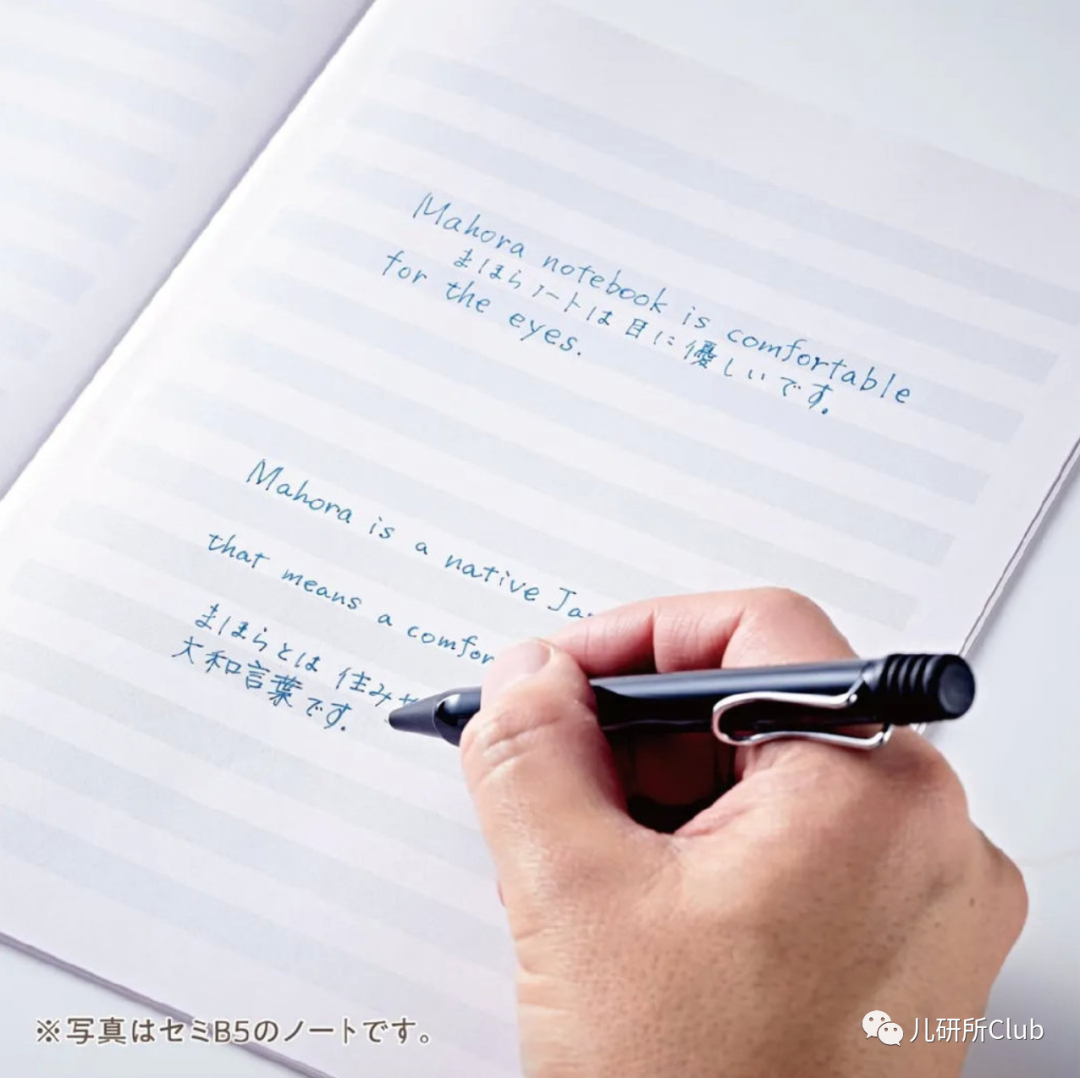 Mahora notebook is comfortable
まほらノートは目に優しいです。
for the eyes.
Mahora is a native
that means a
まほらとは 住み
大和言葉です。
※写真はセミB5のノートです。
儿研所Club